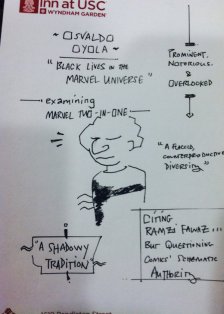 Inn at USC
WYNDHAM GARDEN®
~ OSVALDO
OYOLA ~
"BLACK LIVES IN THE
MARVEL UNIVERSE"
examining
MARVEL TWO-IN-ONE
PROMINENT,
NOTORIOUS,
&
OVERLOOKED
"A FLACCID,
COUNTERPRODUCTIVE
DIVERSITY"
"A SHADOWY
TRADITION"
CITING
RAMZI FAWAZ...
BUT QUESTIONING
COMICS' SCHEMATIC
AUTHORITY